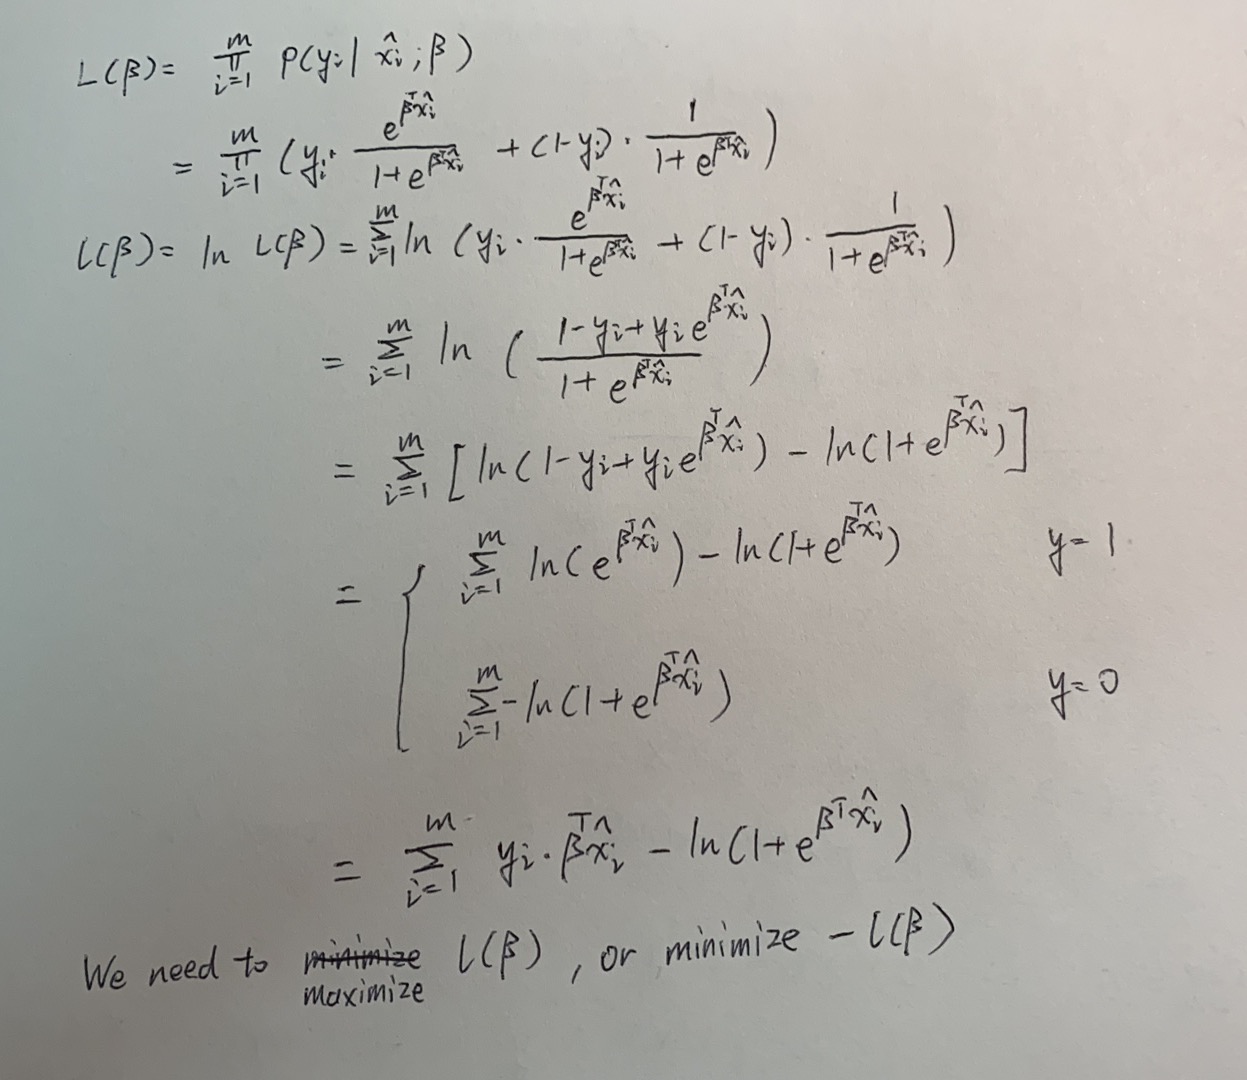 L(β) = ∏_{i=1}^{m} P(y_i | x̂_i ; β)
= ∏_{i=1}^{m} (y_i · \frac{e^{β^T x̂_i}}{1+e^{β^T x̂_i}} + (1-y_i) · \frac{1}{1+e^{β^T x̂_i}})
l(β) = ln L(β) = ∑_{i=1}^{m} ln (y_i · \frac{e^{β^T x̂_i}}{1+e^{β^T x̂_i}} + (1-y_i) · \frac{1}{1+e^{β^T x̂_i}})
= ∑_{i=1}^{m} ln (\frac{1-y_i+y_i e^{β^T x̂_i}}{1+e^{β^T x̂_i}})
= ∑_{i=1}^{m} [ln(1-y_i+y_i e^{β^T x̂_i}) - ln(1+e^{β^T x̂_i})]
= { ∑_{i=1}^{m} ln(e^{β^T x̂_i}) - ln(1+e^{β^T x̂_i}) y=1
∑_{i=1}^{m} -ln(1+e^{β^T x̂_i}) y=0
= ∑_{i=1}^{m} y_i · β^T x̂_i - ln(1+e^{β^T x̂_i})
We need to ~~minimize~~ l(β), or minimize -l(β)
maximize